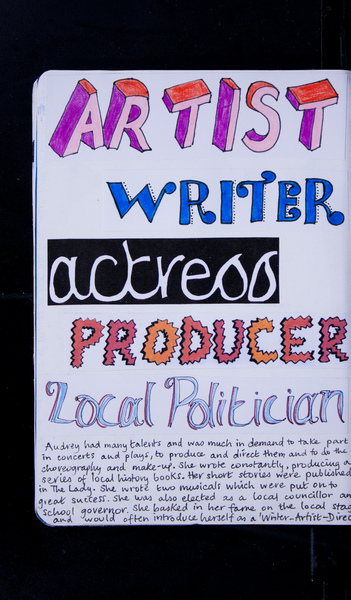 ARTIST
WRITER
actress
PRODUCER
Local Politician
Audrey had many talents and was much in demand to take part
in concerts and plays, to produce and direct them and to do the
choreography and make-up. She wrote constantly, producing a
series of local history books. Her short stories were published
in The Lady. She wrote two musicals which were put on to
great success. She was also elected as a local councillor an
school governor. She basked in her fame on the local stag
and would often introduce herself as a 'Writer-Artist-Direc